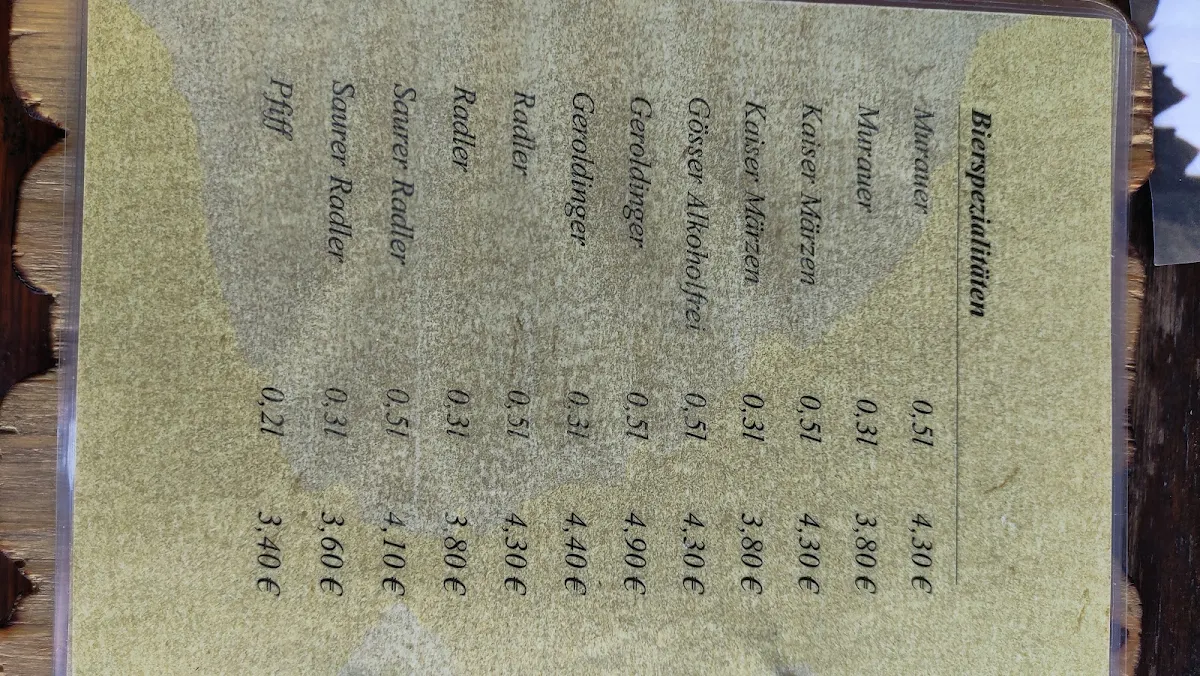 Bierspezialitäten
Murauer 0,5l 4,30 €
Murauer 0,3l 3,80 €
Kaiser Märzen 0,5l 4,30 €
Kaiser Märzen 0,3l 3,80 €
Gösser Alkoholfrei 0,5l 4,30 €
Geroldinger 0,5l 4,90 €
Geroldinger 0,3l 4,40 €
Radler 0,5l 4,30 €
Radler 0,3l 3,80 €
Saurer Radler 0,5l 4,10 €
Saurer Radler 0,3l 3,60 €
Pfiff 0,2l 3,40 €